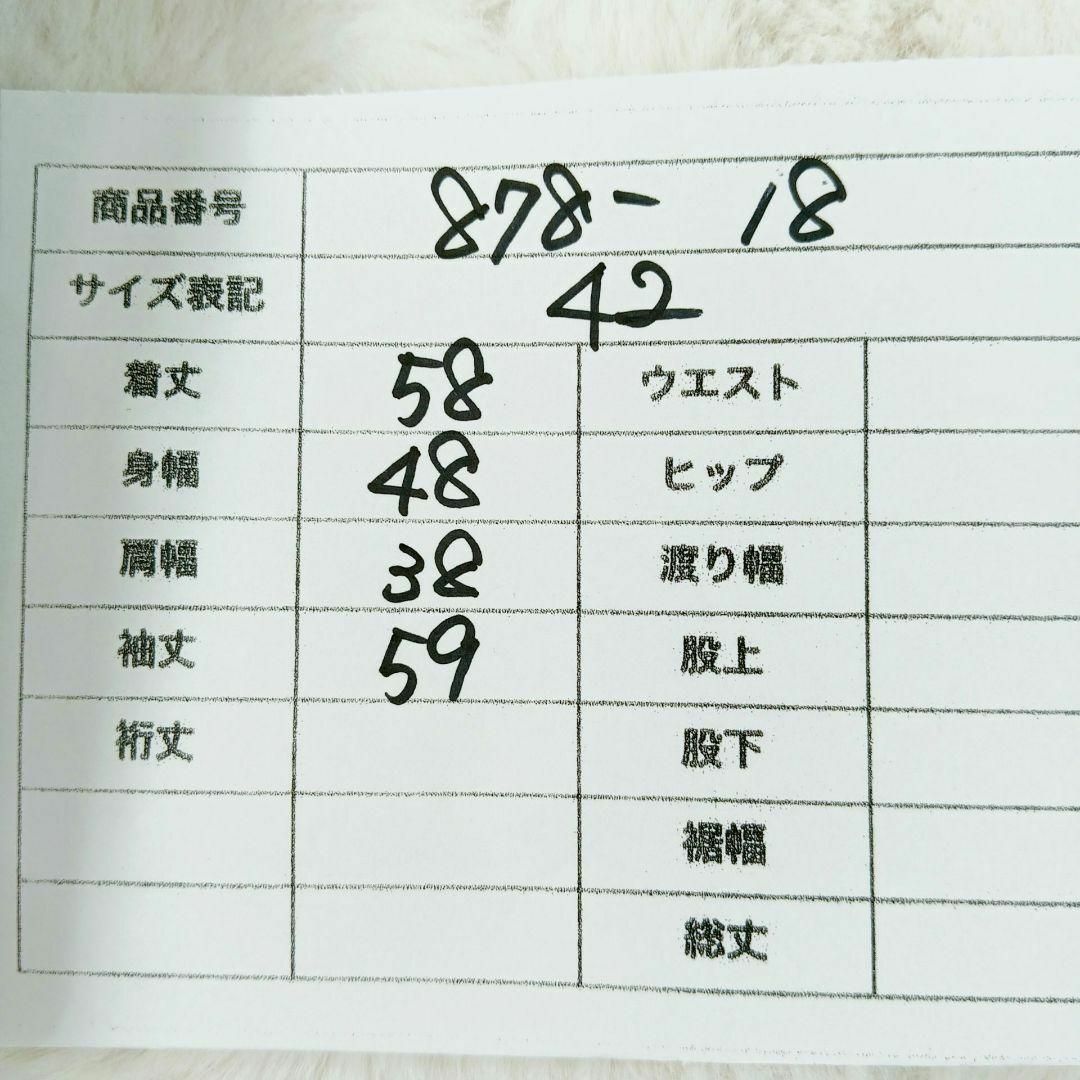 商品番号 878- 18
サイズ表記 42
着丈 58 ウエスト
身幅 48 ヒップ
肩幅 38 渡り幅
袖丈 59 股上
裄丈 股下
裾幅
総丈